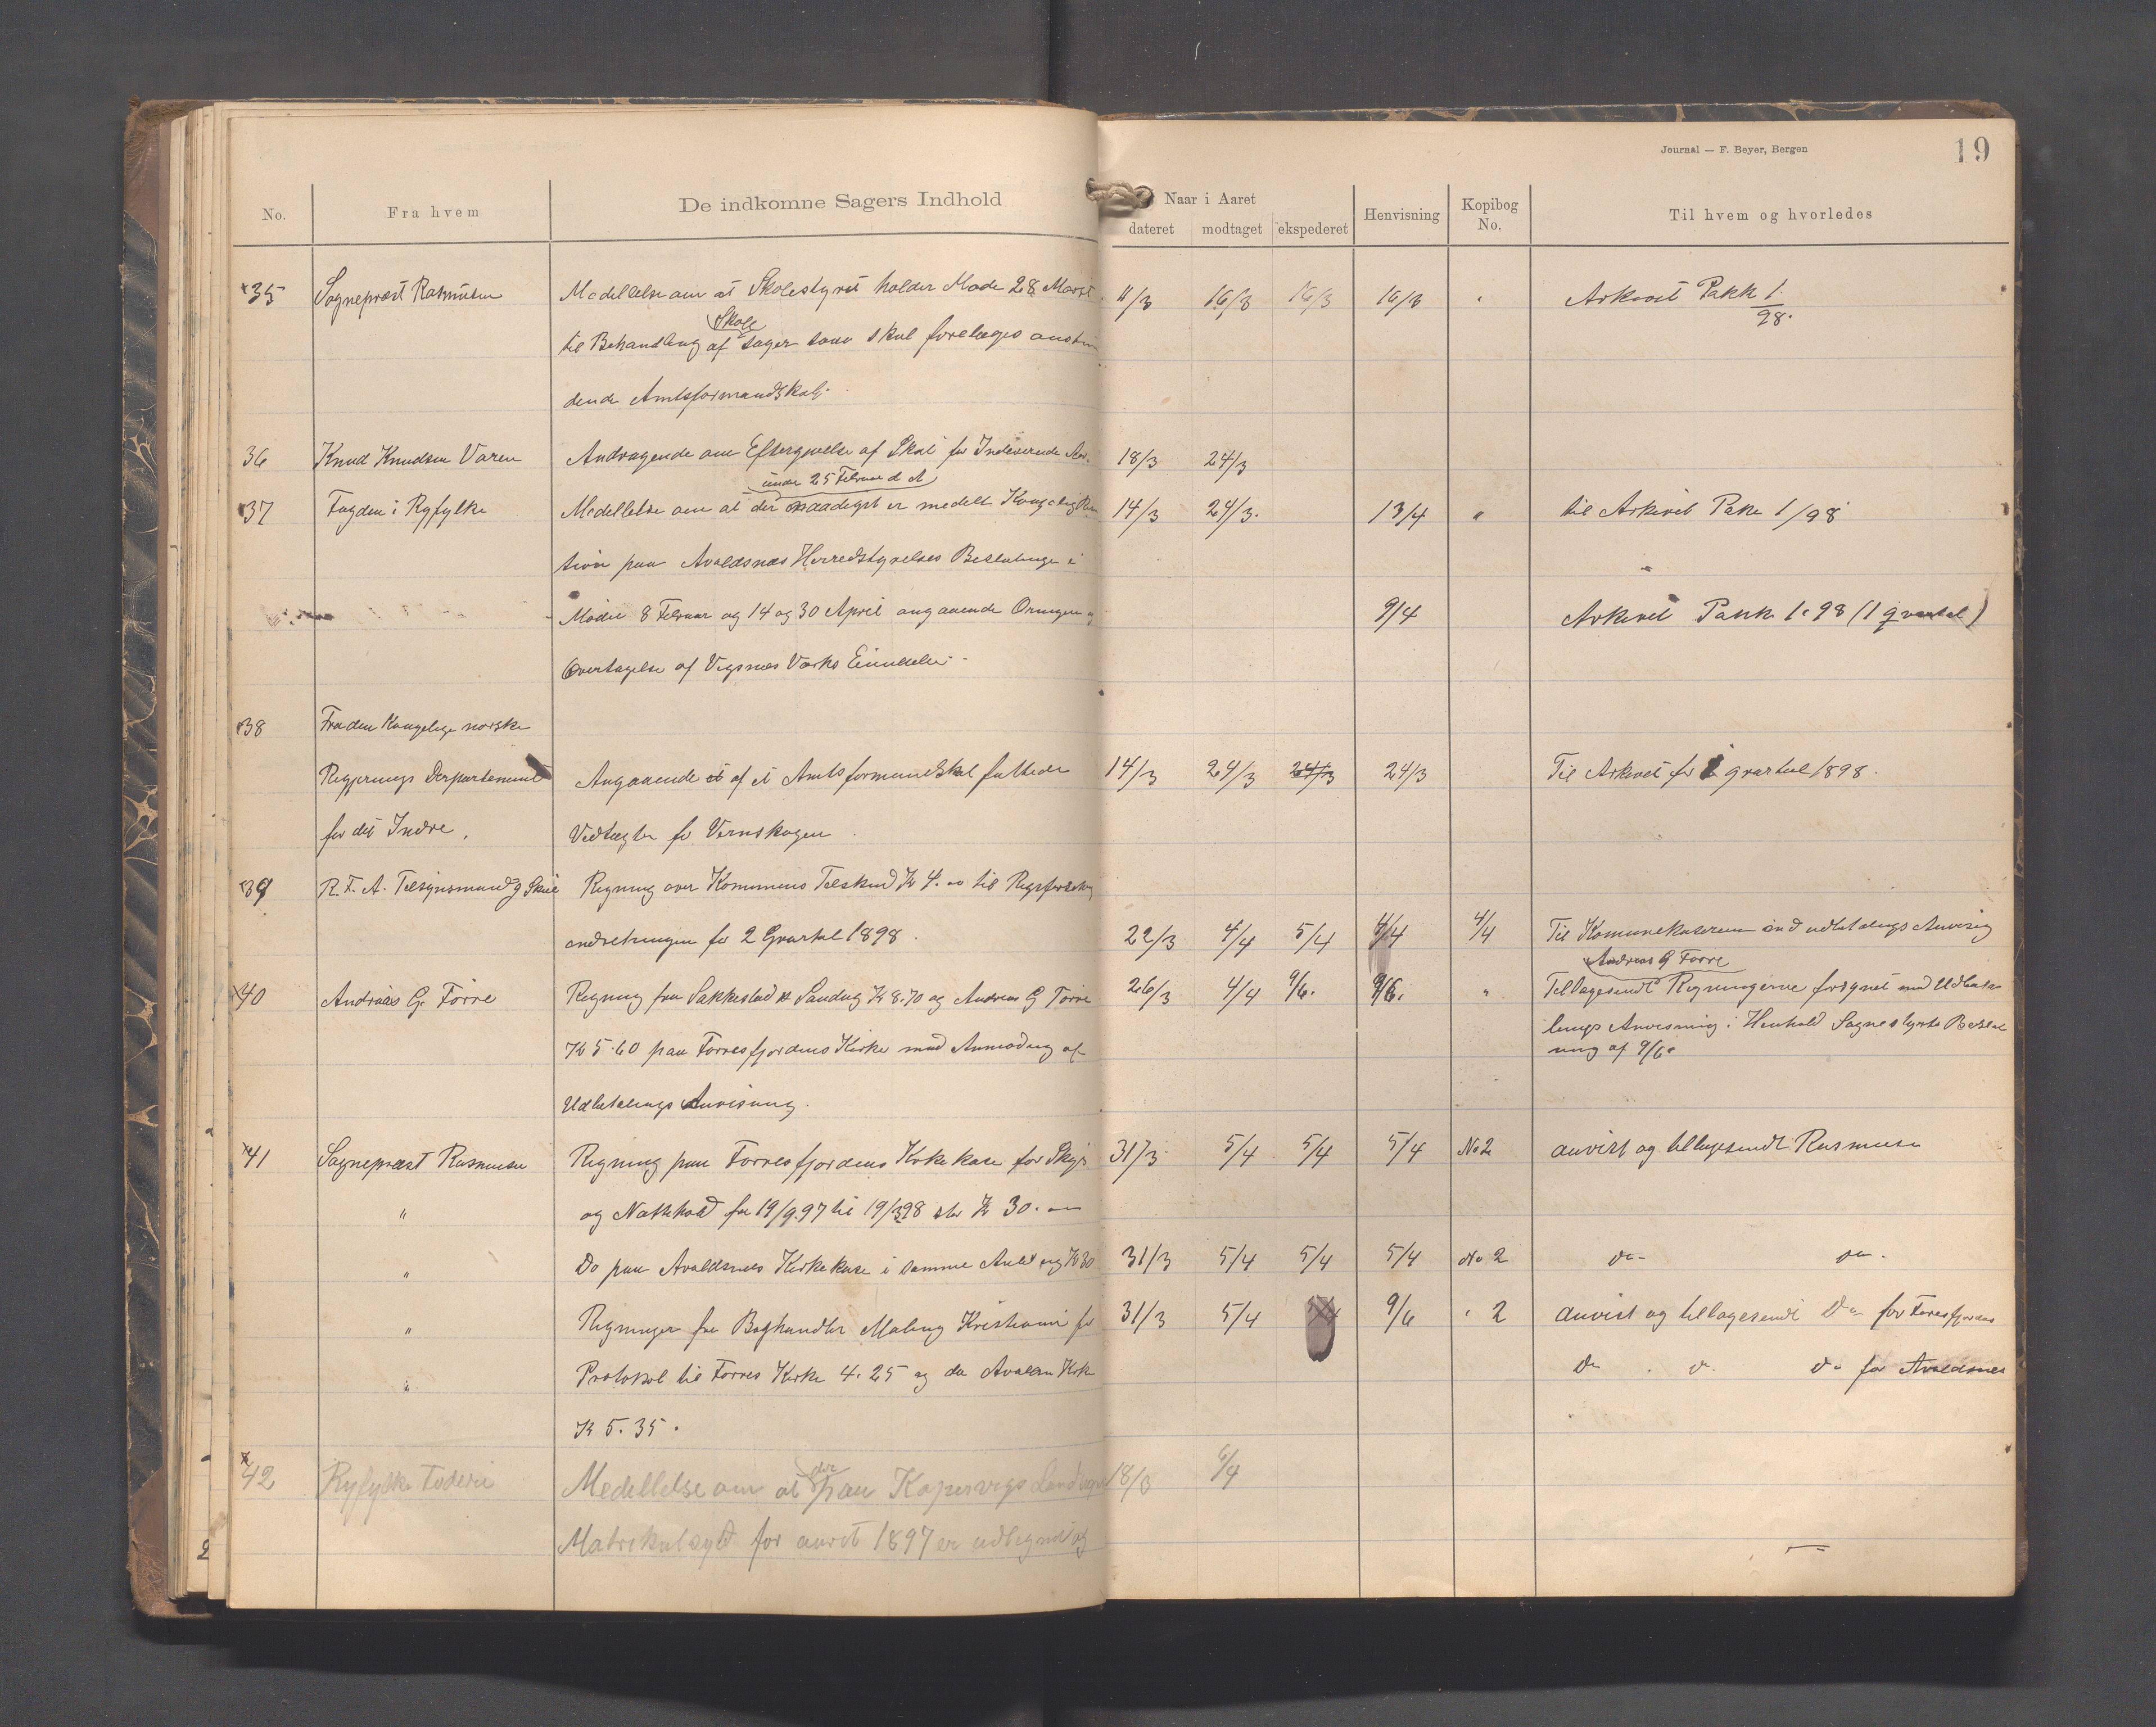 Journal — F. Beyer, Bergen
19
No.
Fra hvem
De indkomne Sagers Indhold
Naar i Aaret
dateret
modtaget
ekspederet
Henvisning
Kopibog No.
Til hvem og hvorledes
35 Sogneprest Rasmusen Meddelelse om at Skolestyret holder Møde 28 Marts 11/3 16/3 16/3 16/3 " Arkivet Pakk 1/98.
til Behandling af Skole Sager som skal forelægges anstun
dende Amtsformandskab.
36 Knud Knudsen Varen Andragende om Eftergivelse af Skat for Indeværende Aar. 18/3 24/3
under 25 Februar d A
37 Fogden i Ryfylke Meddellelse om at der naadigst er meddelt Kongelig 14/3 24/3. 13/4 " til Arkivet Pake 1/98
tion paa Avaldsnes Herredstyrelses Beslutninger i
Møder 8 Februar og 14 og 30 April angaaende Ordningen 9/4 Arkivet Pakk 1. 98 (1 qvartal)
Overtagelse af Vigsnes Værks Eiendele.
38 Fra den Kongelige norske
Regjerings Departement Angaaende et af et Amtsformandskab fattede 14/3 24/3 24/3 24/3 Til Arkivet for 1 qvartal 1898.
for det Indre. Vedtægter for Vernskogen
39 R. F. A. Tilsynsmand Regning over Kommunens Tilskud Kr 4. 00 til
for 2 Qvartal 1898. 22/3 4/4 5/4 4/4 4/4 Til Komunekasereren med udbetalings Anvisnig
Andreas G Førre
40 Andreas G. Førre Regning fra Sakkestad & Sandvig Kr 8.70 og Andreas G Førre 26/3 4/4 9/6. 9/6. " Tilbagesendt Regningerne forsynet med Udbeta
Kr 5.60 paa Førresfjordens Kirke med Anmodning af lings Anvisning i Henhold Sognestyrets Beslut
ning af 9/6.
Udbetalings Anvisning.
41 Sogneprest Rasmusen Regning paa Førresfjordens Kirkekase for Skyds 31/3 5/4 5/4 5/4 No 2 anvist og tilbagesendt Rasmusen
" og Nattehold fra 19/9.97 til 19/3 98 stor Kr 30. 00
" Do paa Avaldsnes Kirkekase i samme Anledning Kr 30 31/3 5/4 5/4 5/4 No 2 do do.
" Regninger fra Boghandler Maling Kristiania for 31/3 5/4 9/6 " 2 anvist og tilbagesendt Do for Føresfjorden
" Protokol til Førres Kirke 4. 25 og do Avaldsn Kirke Do . D. do for Avaldsnes
Kr 5. 35.
42 Ryfylke Foderi Meddellelse om at der paa Kopervigs Landsogns 18/3 6/4
Matrikulskyld for aaret 1897 er udlignet og